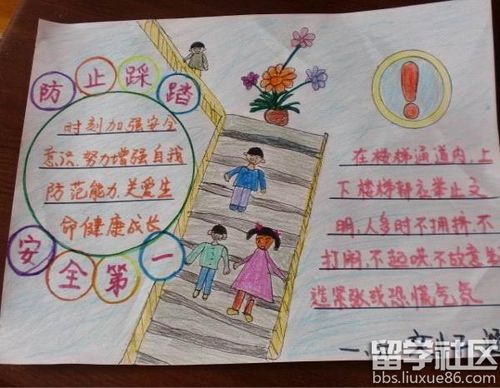 防止踩踏
时刻加强安全
意识,努力增强自我
防范能力,关爱生
命健康成长
安全第一
在楼梯通道内,上
下楼梯都应举止文
明,人多时不拥挤,不
打闹,不起哄,不故意
造紧张或恐慌气氛
留学社区
bbs.liuxue86.com